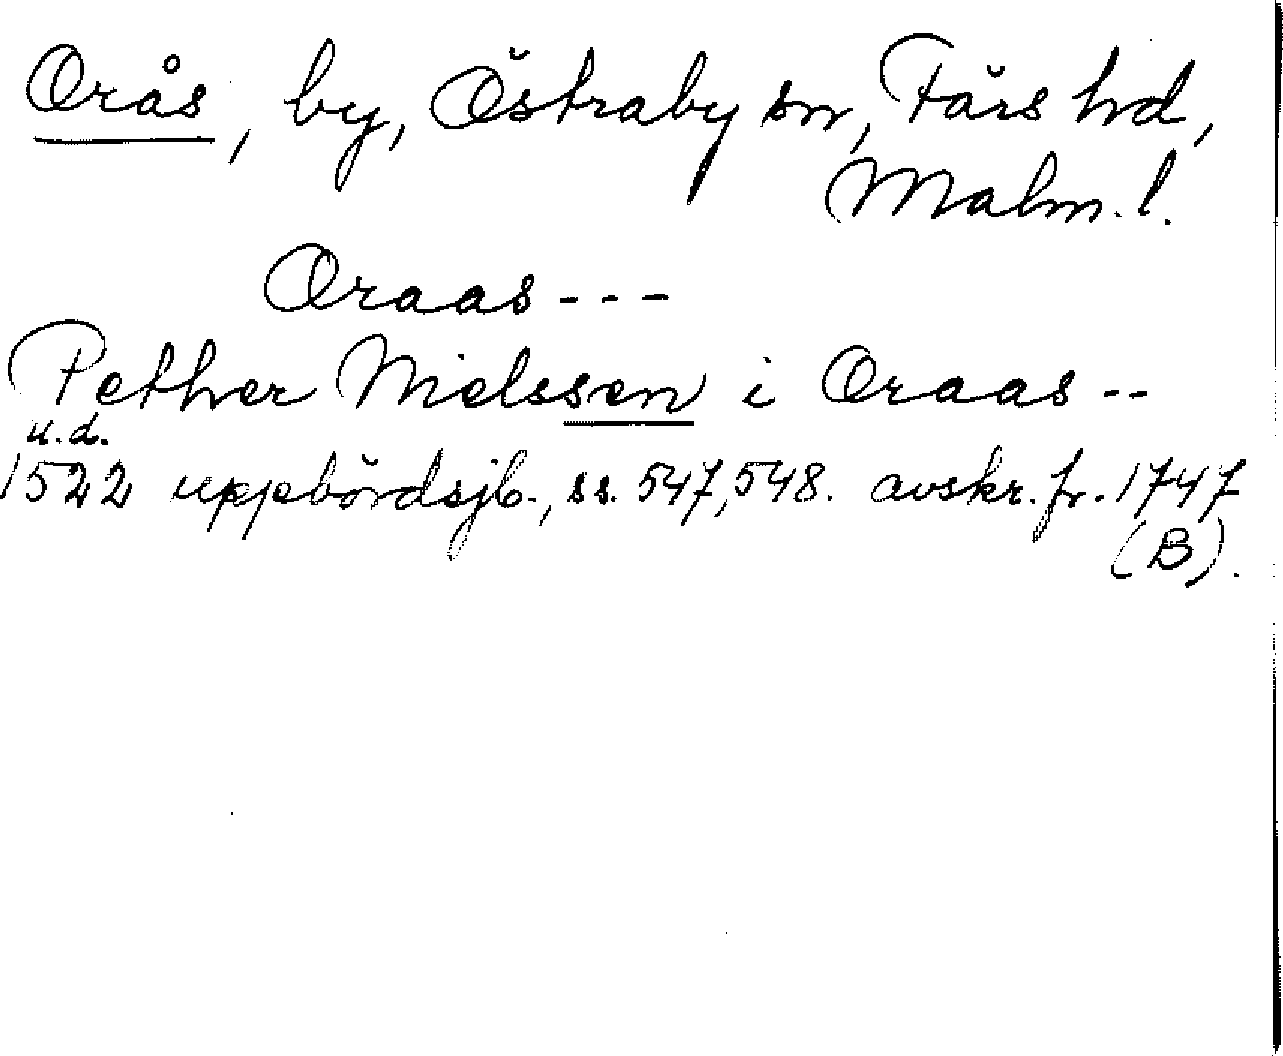 Orås, by, Östraby sn, Färs hd,
Malm. l.
Oraas ---
Pether Nielssen i Oraas --
u.d.
1522 uppbördsjb., ss. 547, 548. avskr. fr. 1747
(B).